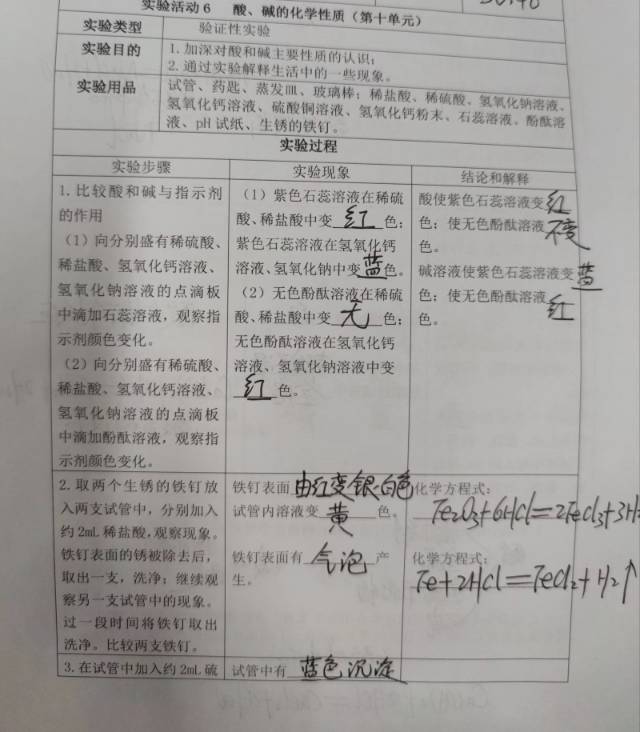 实验活动6 酸、碱的化学性质（第十单元）
实验类型 验证性实验
实验目的 1.加深对酸和碱主要性质的认识；
2.通过实验解释生活中的一些现象。
实验用品 试管、药匙、蒸发皿、玻璃棒；稀盐酸、稀硫酸、氢氧化钠溶液、
氢氧化钙溶液、硫酸铜溶液、氢氧化钙粉末、石蕊溶液、酚酞溶
液、pH试纸、生锈的铁钉。
实验过程
实验步骤 实验现象 结论和解释
1.比较酸和碱与指示剂
的作用
（1）向分别盛有稀硫酸、
稀盐酸、氢氧化钙溶液、
氢氧化钠溶液的点滴板
中滴加石蕊溶液，观察指
示剂颜色变化。
（2）向分别盛有稀硫酸、
稀盐酸、氢氧化钙溶液、
氢氧化钠溶液的点滴板
中滴加酚酞溶液，观察指
示剂颜色变化。
（1）紫色石蕊溶液在稀硫
酸、稀盐酸中变红色；
紫色石蕊溶液在氢氧化钙
溶液、氢氧化钠中变蓝色。
（2）无色酚酞溶液在稀硫
酸、稀盐酸中变无色；
无色酚酞溶液在氢氧化钙
溶液、氢氧化钠溶液中变
红色。
酸使紫色石蕊溶液变红
色；使无色酚酞溶液不变
色。
碱溶液使紫色石蕊溶液变蓝
色；使无色酚酞溶液红
色。
2.取两个生锈的铁钉放
入两支试管中，分别加入
约2mL稀盐酸，观察现象。
铁钉表面的锈被除去后，
取出一支，洗净；继续观
察另一支试管中的现象。
过一段时间将铁钉取出
洗净。比较两支铁钉。
铁钉表面由红变银白色
试管内溶液变黄色。
铁钉表面有气泡产
生。
化学方程式：
Fe2O3+6HCl=2FeCl3+3H
化学方程式：
Fe+2HCl=FeCl2+H2↑
3.在试管中加入约2mL硫 试管中有蓝色沉淀